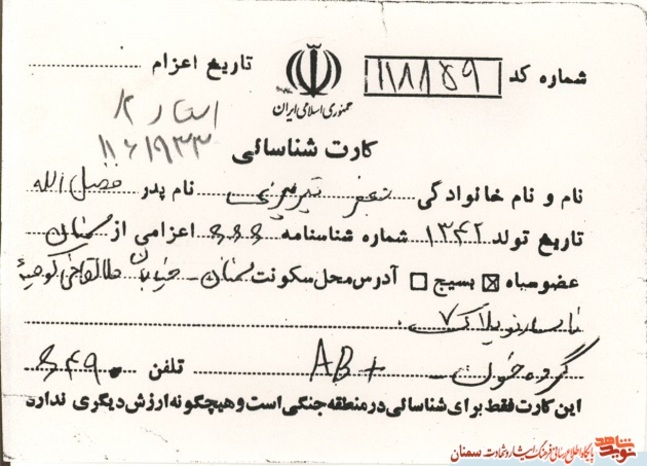 شماره کد ۱۱۸۸۵۹
تاریخ اعزام
جمهوری اسلامی ایران
کارت شناسائی
نام و نام خانوادگی جعفر نام پدر فضل الله
تاریخ تولد ۱۳۴۲ شماره شناسنامه ۶۶۶ اعزامی از سمنان
عضو سپاه ☒ بسیج ☐ آدرس محل سکونت سمنان - خیابان طالقانی کوچه
پلاک ۷
گروه خون AB+ تلفن
این کارت فقط برای شناسائی در منطقه جنگی است و هیچگونه ارزش دیگری ندارد
نوید شاهد
پایگاه اطلاع رسانی فرهنگ ایثار و شهادت سمنان